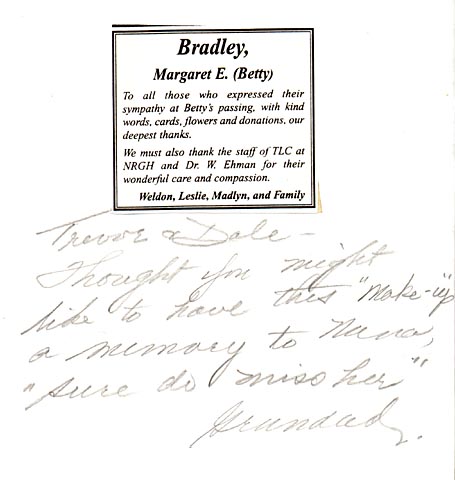 Bradley,
Margaret E. (Betty)
To all those who expressed their
sympathy at Betty's passing, with kind
words, cards, flowers and donations, our
deepest thanks.
We must also thank the staff of TLC at
NRGH and Dr. W. Ehman for their
wonderful care and compassion.
Weldon, Leslie, Madlyn, and Family
Trevor & Dale -
Thought you might
like to have this "Make-up"
a memory to Nana,
"Sure do miss her"
Grandad.